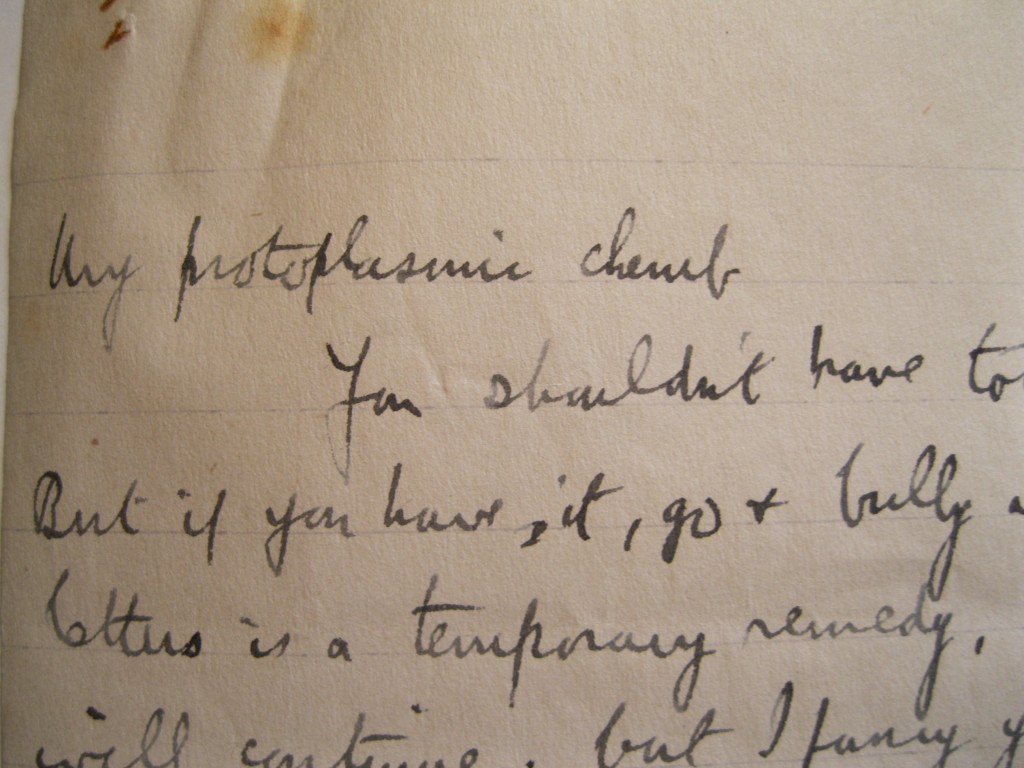 My protoplasmic cherub
You shouldn't have to
But if you have, it, go + bully
letters is a temporary remedy,
will continue, but I fancy